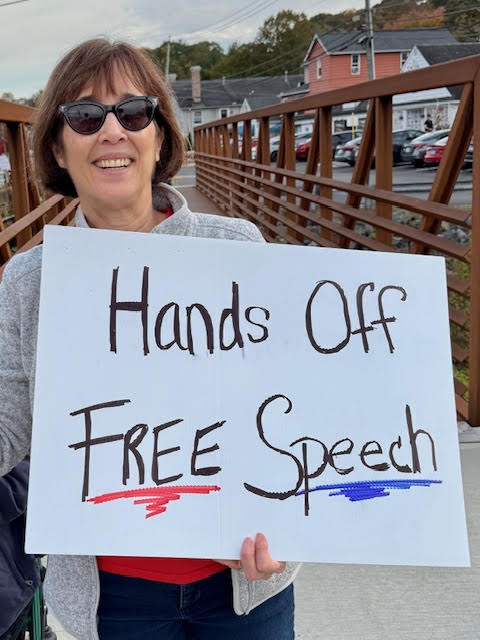 Hands Off
FREE Speech